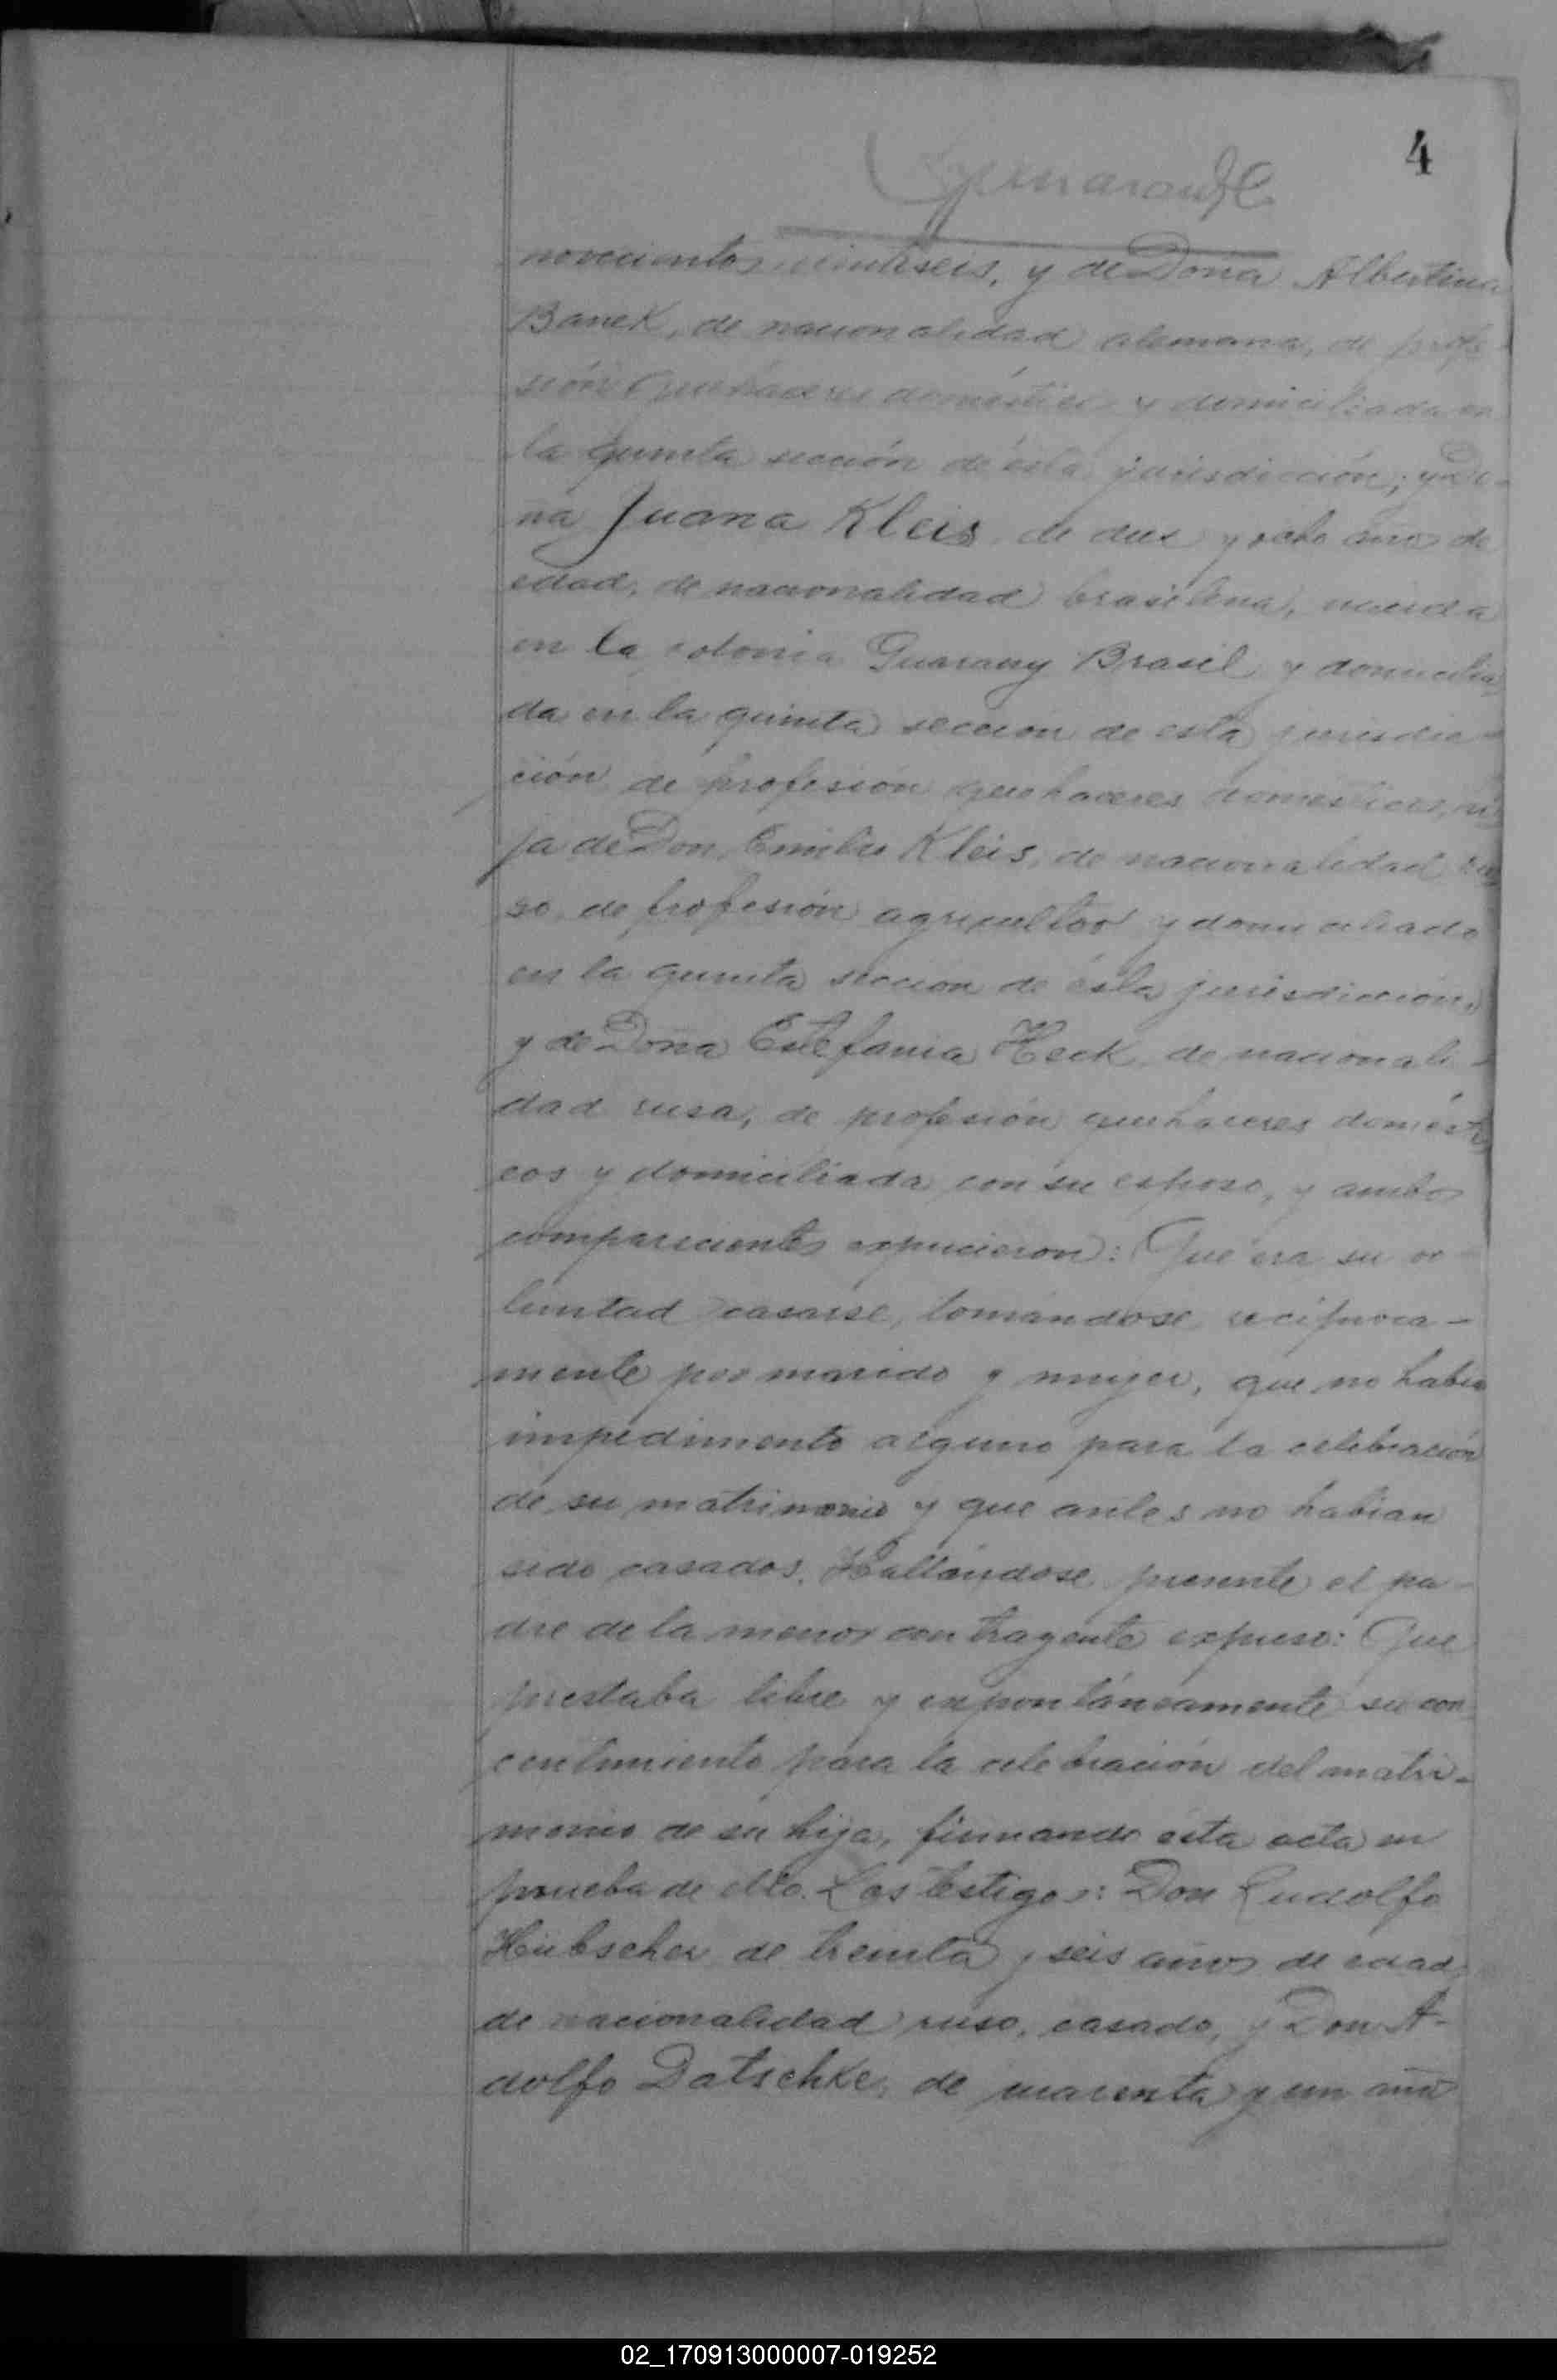 4
novecientos veintiseis, y de Doña Albertina
Banek, de nacionalidad alemana, de profe-
sión quehaceres domésticos y domiciliada en
la quinta sección de ésta jurisdicción; y Do-
ña Juana Kleis, de diez y ocho años de
edad, de nacionalidad brasilena, nacida
en la colonia Guarany Brasil y domicilia
da en la quinta seccion de esta jurisdic-
ción, de profesión quehaceres domesticos, hi
ja de Don Emilio Kleis, de nacionalidad ru
so, de profesión agricultor y domiciliado
en la quinta seccion de ésta jurisdiccion,
y de Doña Estefania Heck, de nacionali-
dad rusa, de profesión quehaceres domésti
cos y domiciliada con su esposo, y ambos
comparecientes expusieron: Que era su vo-
luntad casarse, tomándose recíproca-
mente por marido y mujer, que no había
impedimento alguno para la celebración
de su matrimonio y que antes no habian
sido casados. Hallándose presente el pa-
dre de la menor contrayente expuso: Que
prestaba libre y expontáneamente su con
centimiento para la celebración del matri-
monio de su hija, firmando ésta acta en
prueba de ello. Los testigos: Don Ludolfo
Hübscher de treinta y seis años de edad,
de nacionalidad ruso, casado, y Don A-
dolfo Datschke, de cuarenta y un años
02_170913000007-019252